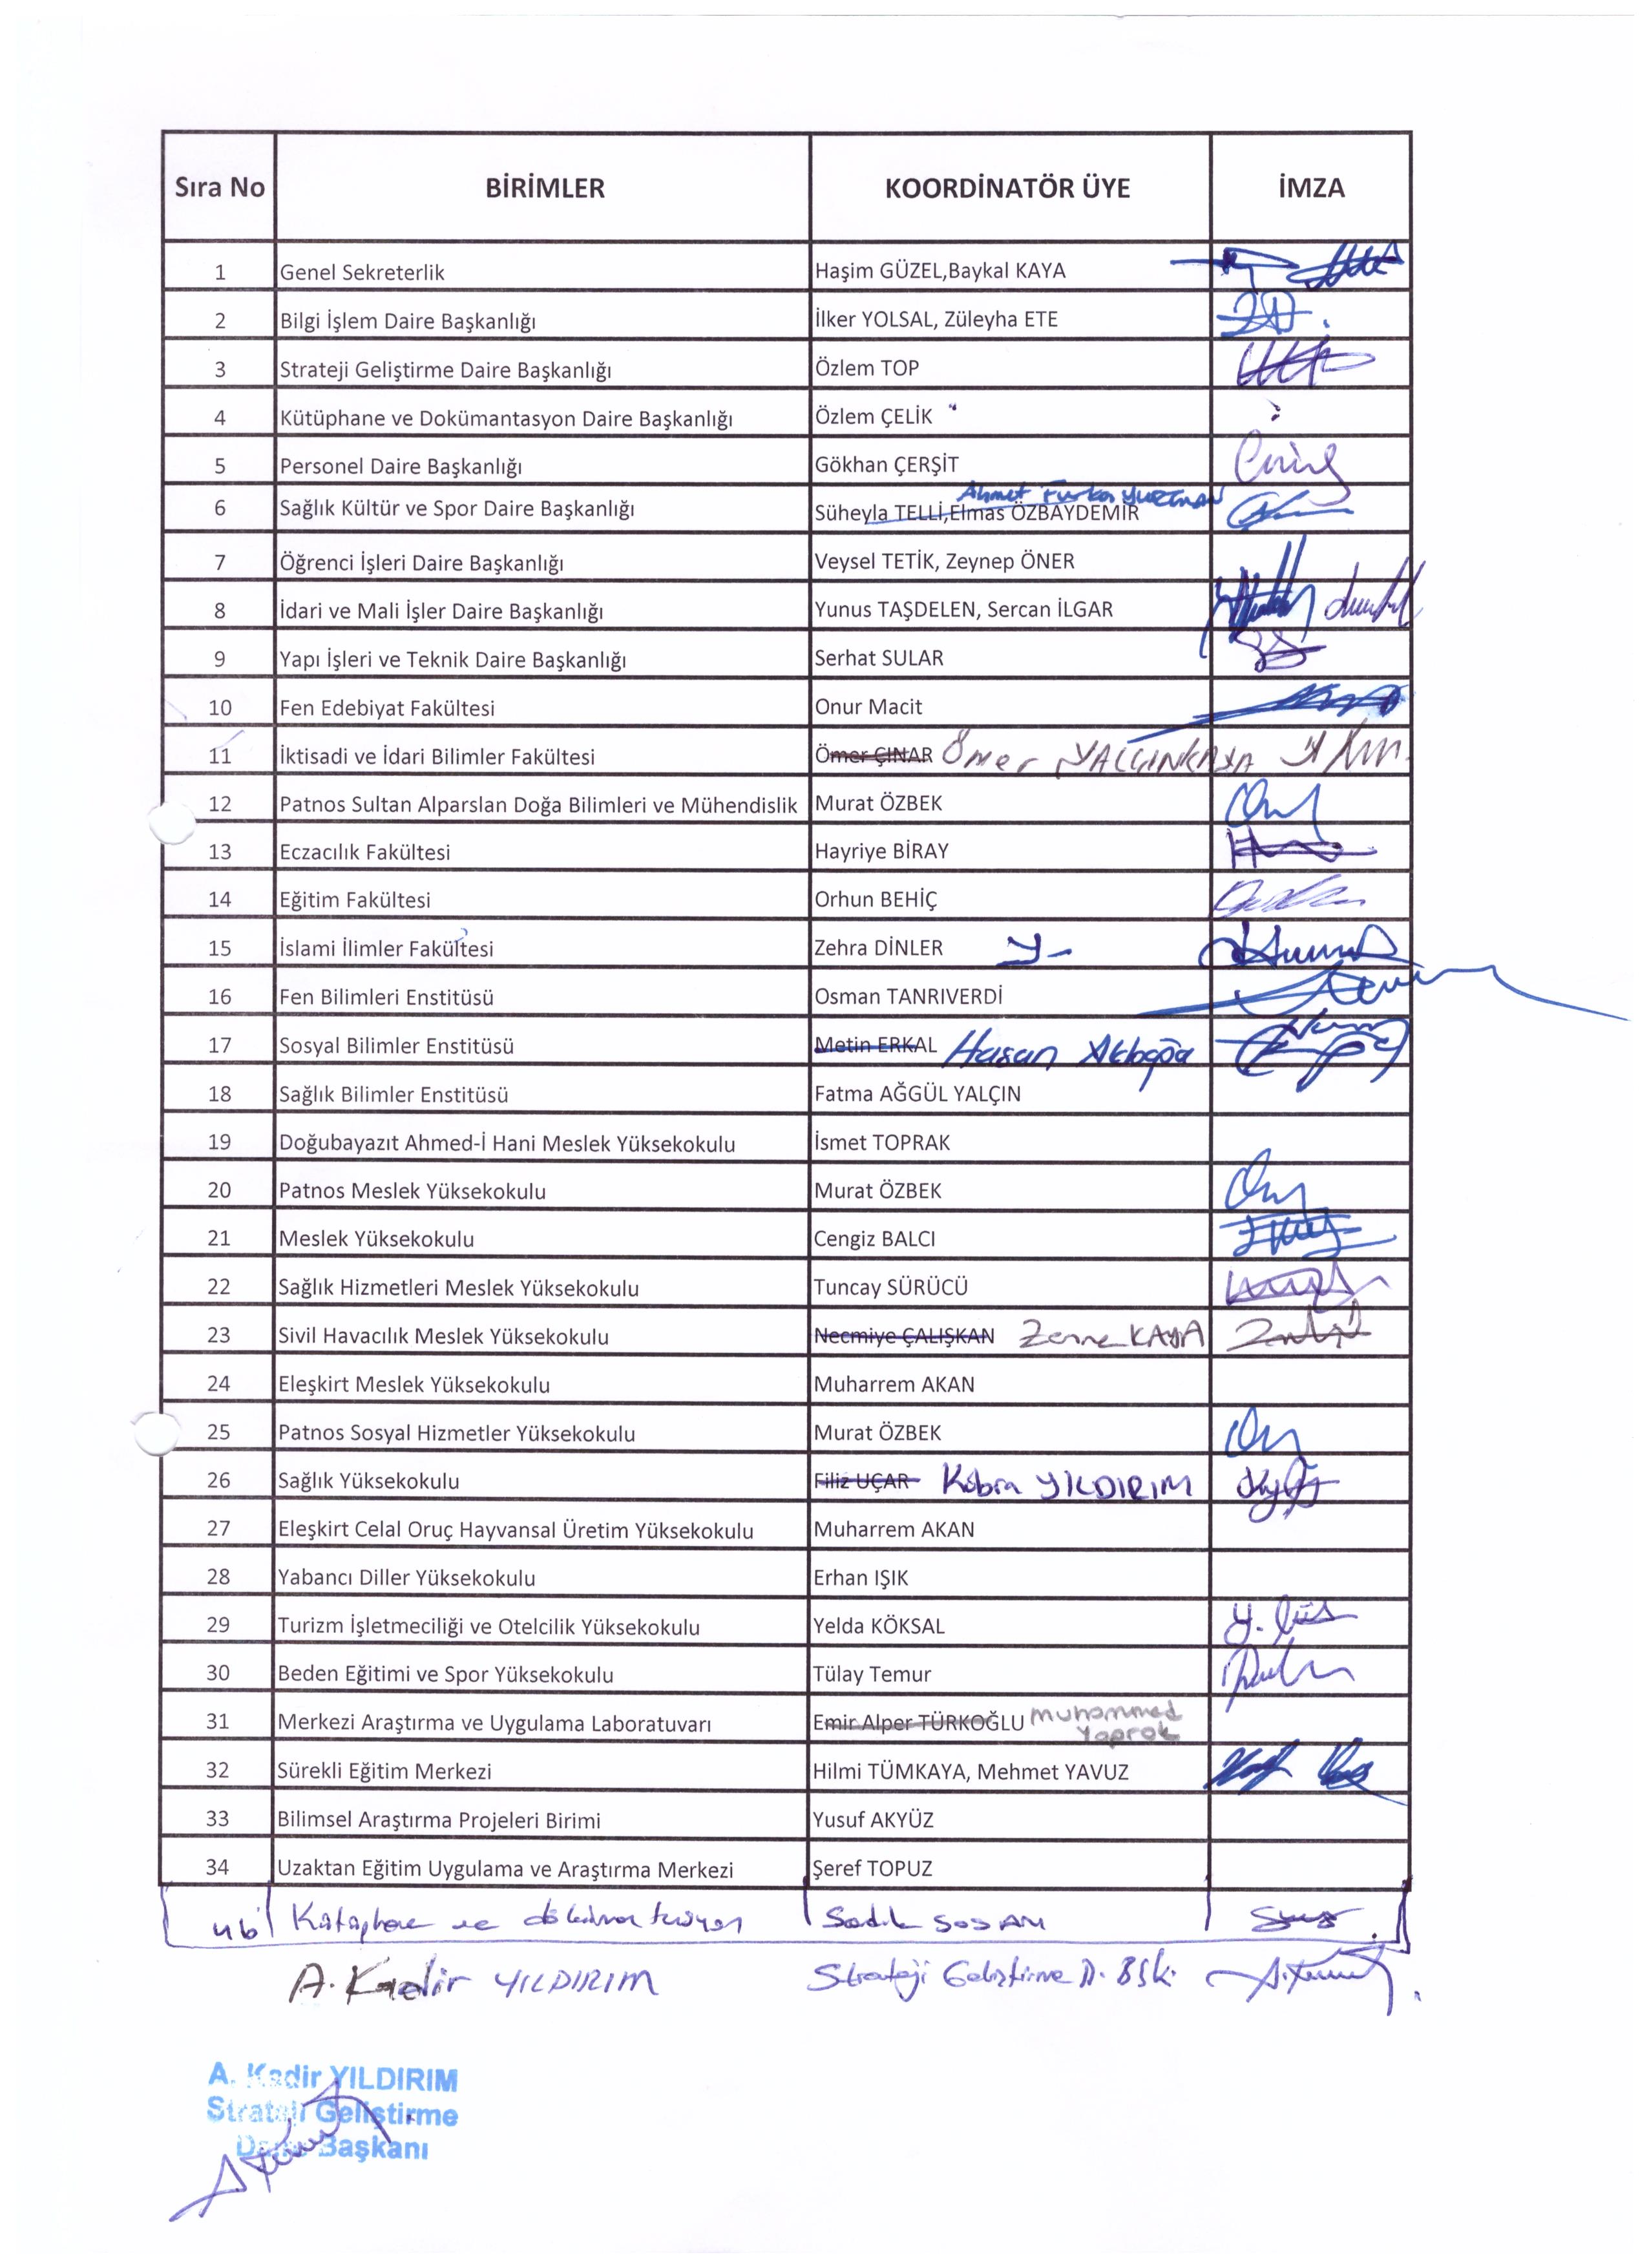 Sıra No BİRİMLER KOORDİNATÖR ÜYE İMZA
1 Genel Sekreterlik Haşim GÜZEL,Baykal KAYA
2 Bilgi İşlem Daire Başkanlığı İlker YOLSAL, Züleyha ETE
3 Strateji Geliştirme Daire Başkanlığı Özlem TOP
4 Kütüphane ve Dokümantasyon Daire Başkanlığı Özlem ÇELİK
5 Personel Daire Başkanlığı Gökhan ÇERŞİT
Ahmet Furkan YURTMAN
6 Sağlık Kültür ve Spor Daire Başkanlığı Süheyla TELLİ,Elmas ÖZBAYDEMİR
7 Öğrenci İşleri Daire Başkanlığı Veysel TETİK, Zeynep ÖNER
8 İdari ve Mali İşler Daire Başkanlığı Yunus TAŞDELEN, Sercan İLGAR
9 Yapı İşleri ve Teknik Daire Başkanlığı Serhat SULAR
10 Fen Edebiyat Fakültesi Onur Macit
11 İktisadi ve İdari Bilimler Fakültesi Ömer ÇINAR Ömer YALÇINKAYA
12 Patnos Sultan Alparslan Doğa Bilimleri ve Mühendislik Murat ÖZBEK
13 Eczacılık Fakültesi Hayriye BİRAY
14 Eğitim Fakültesi Orhun BEHİÇ
15 İslami İlimler Fakültesi Zehra DİNLER
16 Fen Bilimleri Enstitüsü Osman TANRIVERDİ
17 Sosyal Bilimler Enstitüsü Metin ERKAL Hasan
18 Sağlık Bilimler Enstitüsü Fatma AĞGÜL YALÇIN
19 Doğubayazıt Ahmed-İ Hani Meslek Yüksekokulu İsmet TOPRAK
20 Patnos Meslek Yüksekokulu Murat ÖZBEK
21 Meslek Yüksekokulu Cengiz BALCI
22 Sağlık Hizmetleri Meslek Yüksekokulu Tuncay SÜRÜCÜ
23 Sivil Havacılık Meslek Yüksekokulu Necmiye ÇALIŞKAN KAYA
24 Eleşkirt Meslek Yüksekokulu Muharrem AKAN
25 Patnos Sosyal Hizmetler Yüksekokulu Murat ÖZBEK
26 Sağlık Yüksekokulu Filiz UÇAR Kübra YILDIRIM
27 Eleşkirt Celal Oruç Hayvansal Üretim Yüksekokulu Muharrem AKAN
28 Yabancı Diller Yüksekokulu Erhan IŞIK
29 Turizm İşletmeciliği ve Otelcilik Yüksekokulu Yelda KÖKSAL
30 Beden Eğitimi ve Spor Yüksekokulu Tülay Temur
31 Merkezi Araştırma ve Uygulama Laboratuvarı Emir Alper TÜRKOĞLU muhammed
Yaprak
32 Sürekli Eğitim Merkezi Hilmi TÜMKAYA, Mehmet YAVUZ
33 Bilimsel Araştırma Projeleri Birimi Yusuf AKYÜZ
34 Uzaktan Eğitim Uygulama ve Araştırma Merkezi Şeref TOPUZ
Kütüphane ve dökümantasyon Sadık
A. Kadir YILDIRIM Strateji Geliştirme D. Bşk.
A. Kadir YILDIRIM
Strateji Geliştirme
Daire Başkanı